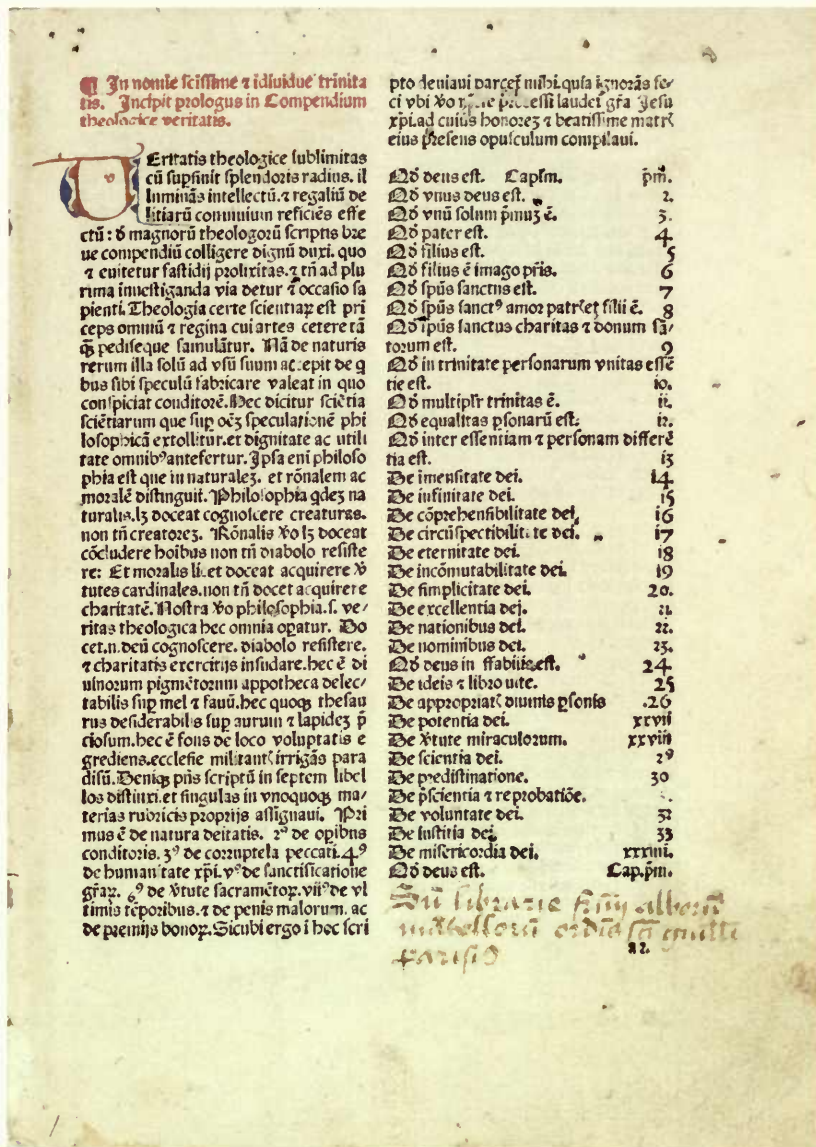 ¶ In nomīe scissime ⁊ idiuidue trinita
tis. Incipit prologus in Compendium
theologice veritatis.
UEritatis theologice sublimitas
cū supsinit splendoris radius. il
luminās intellectū. ⁊ regaliū de
litiarū conuiuium reficiēs effe
ctū: d̄ magnorū theologorū scriptis bre
ue compendiū colligere dignū duxi. quo
⁊ euitetur fastidij prolixitas. ⁊ tñ ad plu
rima inuestiganda via detur ⁊ occasio sa
pienti. Theologia certe scientiaꝝ est pri
ceps omniū ⁊ regina cui artes cetere tā
ꝙ̄ pedisseque famulātur. Nā de naturis
rerum illa solū ad vsū suum accepit de q
bus sibi speculū fabricare valeat in quo
conspiciat conditorē. Hec dicitur sciētia
sciētiarum que sup oēꝫ speculationē phi
losophicā extollitur. et dignitate ac utili
tate omnibꝰ antefertur. Ipsa eni philoso
phia est que in naturaleꝫ. et rōnalem ac
moralē distinguit. Philosophia qdeꝫ na
turalis. lꝫ doceat cognoscere creaturas.
non tñ creatoreꝫ. Rōnalis v̄o lꝫ doceat
cōcludere hoibus non tñ diabolo resiste
re: Et moralis licet doceat acquirere v̄
tutes cardinales. non tñ docet acquirere
charitatē. Nostra v̄o philosophia. s. ve/
ritas theologica hec omnia opatur. Do
cet. n. deū cognoscere. diabolo resistere.
⁊ charitatis exercitijs insudare. hec ē di
uinorum pigmētorum appotheca delec/
tabilis sup mel ⁊ fauū. hec quoqꝫ thesau
rus desiderabilis sup aurum ⁊ lapideꝫ p̄
ciosum. hec ē fons de loco voluptatis e
grediens. ecclesie militantꝭ irrigās para
disū. Deniqꝫ pñs scriptū in septem libel
los distinxi. et singulas in vnoquoqꝫ ma/
terias rubricis proprijs assignaui. Pri
mus ē de natura deitatis. 2ꝰ de opibus
conditoris. 3ꝰ de corruptela peccati. 4ꝰ
de humanitate xp̄i. vꝰ de sanctificatione
gr̄aꝝ. 6ꝰ de v̄tute sacramētoꝝ. viiꝰ de vl
timis tēporibus. ⁊ de penis malorum. ac
de premijs bonoꝝ. Sicubi ergo i hec scri
pto deuiaui parceꝭ mihi. quia ignorās fe/
ci vbi v̄o processi laudeꝭ gr̄a Jesu
xp̄i. ad cuius honoreꝫ ⁊ beatissime matrꝭ
eius p̄sens opusculum compilaui.
Qd̄ deus est. Capl̄m. p̄m.
Qd̄ vnus deus est. 2.
Qd̄ vnū solum p̄muꝫ ē. 3.
Qd̄ pater est. 4
Qd̄ filius est. 5
Qd̄ filius ē imago p̄ris. 6
Qd̄ spūs sanctus est. 7
Qd̄ spūs sanctꝰ amor patrꝭ etꝭ filii ē. 8
Qd̄ spūs sanctus charitas ⁊ donum sā/
torum est. 9
Qd̄ in trinitate personarum vnitas essē
tie est. io.
Qd̄ multipl̄r trinitas ē. ii.
Qd̄ equalitas psonarū est. i2.
Qd̄ inter essentiam ⁊ personam differē
tia est. i3
De imensitate dei. i4
De infinitate dei. i5
De cōprehensibilitate dei. i6
De circūspectibilitate dei. i7
De eternitate dei. i8
De incōmutabilitate dei. i9
De simplicitate dei. 20.
De excellentia dei. 2i.
De nationibus dei. 22.
De nominibus dei. 23.
Qd̄ deus in effabilis est. 24
De ideis ⁊ libro uite. 25
De appropriatꝭ diuinis psonis .26
De potentia dei. xxvii
De v̄tute miraculorum. xxviii
De scientia dei. 2ꝰ
De predistinatione. 30
De p̄scientia ⁊ reprobatiōe.
De voluntate dei. 32
De iustitia dei. 33
De misericordia dei. xxxiiii.
Qd̄ deus est. Cap. p̄m.
Sū librarie frm̄ alborū
mātellorū ordīs sā guill
parisiꝰ
a2.